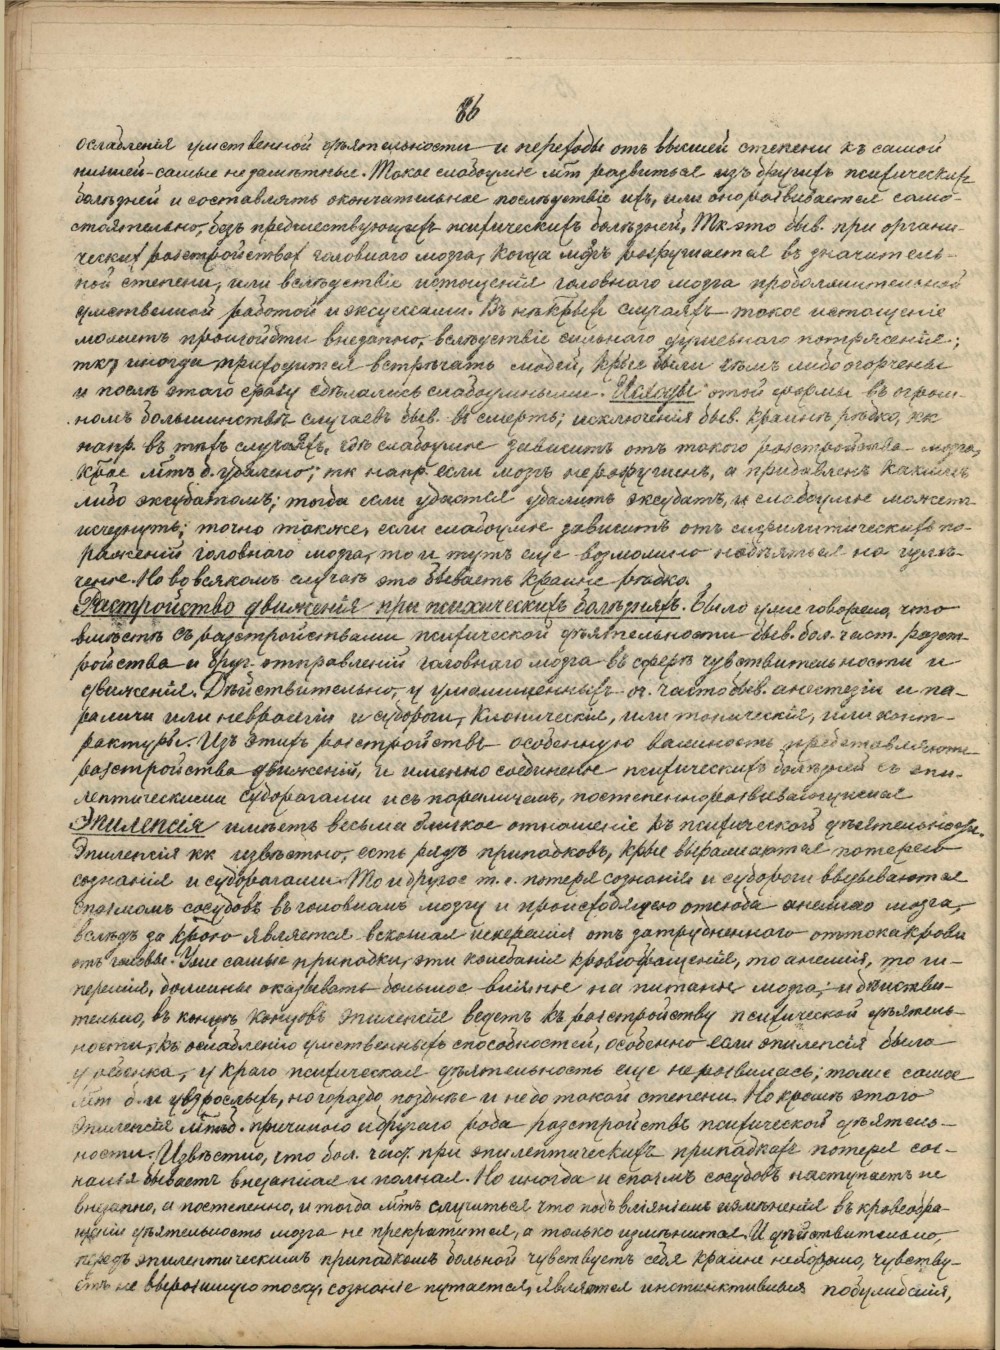 86
ослабленія умственной дѣятельности и переходы отъ высшей степени къ самой
низшей - самые незамѣтные. Такое слабоуміе мт развиться изъ другихъ психическихъ
болѣзней и составлять окончательное послѣдствіе ихъ, или оно развивается само-
стоятельно, безъ предшествующихъ психическихъ болѣзней, Тк. это быв. при органи-
ческих разстройствах головного мозга, когда мозгъ разрушается въ значитель-
ной степени, или вслѣдствіе истощенія головного мозга продолжительной
умственной работой и эксцессами. Въ нѣкрыхъ случаяхъ такое истощеніе
можетъ произойти внезапно, вслѣдствіе сильнаго душевнаго потрясенія;
тк, иногда приходится встрѣчать людей, крые были чѣмъ либо огорчены
и послѣ этаго сразу сдѣлались слабоумными. Исходы этой формы въ огром-
номъ большинствѣ случаевъ быв. въ смерть; исключенія быв. крайнѣ рѣдко, кк
напр. въ тѣхъ случаяхъ, гдѣ слабоуміе зависитъ отъ такого разстройства мозга,
крое мтъ б. удалено; тк напр. если мозгъ не разрушенъ, а придавленъ какимъ
либо эксудатомъ; тогда если удастся удалить эксудатъ, и слабоуміе можетъ
исчезнуть; точно также, если слабоуміе зависитъ отъ сифилитическихъ по-
раженій головного мозга, то и тутъ еще возможно надѣяться на излѣ-
ченіе. Но во всякомъ случаѣ это бываетъ крайне рѣдко.
Растройство движенія при психическихъ болѣзняхъ. Было уже говорено, что
вмѣстѣ съ разстройствами психической дѣятельности быв. бол. част. разст-
ройства и друг. отправленій головнаго мозга въ сферѣ чувствительности и
движенія. Дѣйствительно, у умалишенныхъ оч. часто быв. анестезіи и па-
раличи или невралгіи и судороги, клоническія, или тоническія, или конт-
рактуры. Изъ этихъ разстройствъ особенную важность представляютъ
разстройства движеній, и именно соединеніе психическихъ болѣзней съ эпи-
лептическими судорогами и съ параличемъ, постепенно развивающимся
Эпилепсія имѣетъ весьма близкое отношеніе къ психической дѣятельности.
Эпилепсія кк извѣстно, есть рядъ припадковъ, крые выражаются потерею
сознанія и судорогами. То и другое т. е. потеря сознанія и судороги вызываются
спазмомъ сосудовъ въ головномъ мозгу и происходящею отсюда анеміею мозга,
вслѣдъ за крою является венозная гиперемія отъ затрудненнаго оттока крови
отъ головы. Уже самые припадки, эти колебанія кровообращенія, то анемія, то ги-
перемія, должны оказывать большое вліяніе на питаніе мозга; и дѣйстви-
тельно, въ концѣ концовъ эпилепсія ведетъ къ разстройству психической дѣятель-
ности, къ ослабленію умственныхъ способностей, особенно если эпилепсія была
у ребенка, у краго психическая дѣятельность еще не развилась; тоже самое
мт б. и у взрослыхъ, но гораздо позднѣе и не въ такой степени. Но кромѣ этаго
Эпилепсія мтъ б. причиною и другаго рода разстройствъ психической дѣятель-
ности. Извѣстно, что бол. част. при эпилептическихъ припадкахъ потеря соз-
нанья бываетъ внезапная и полная. Но иногда и спазмъ сосудовъ наступаетъ не
внезапно, а постепенно, и тогда мтъ случиться что подъ вліяніемъ измѣненія въ кровеобра-
щеніи дѣятельность мозга не прекратится, а только измѣнится. И дѣйствительно,
передъ эпилептическимъ припадкомъ больной чувствуетъ себя крайне нехорошо, чувству-
етъ не выразимую тоску, сознаніе путается, являются инстинктивныя побужденія,